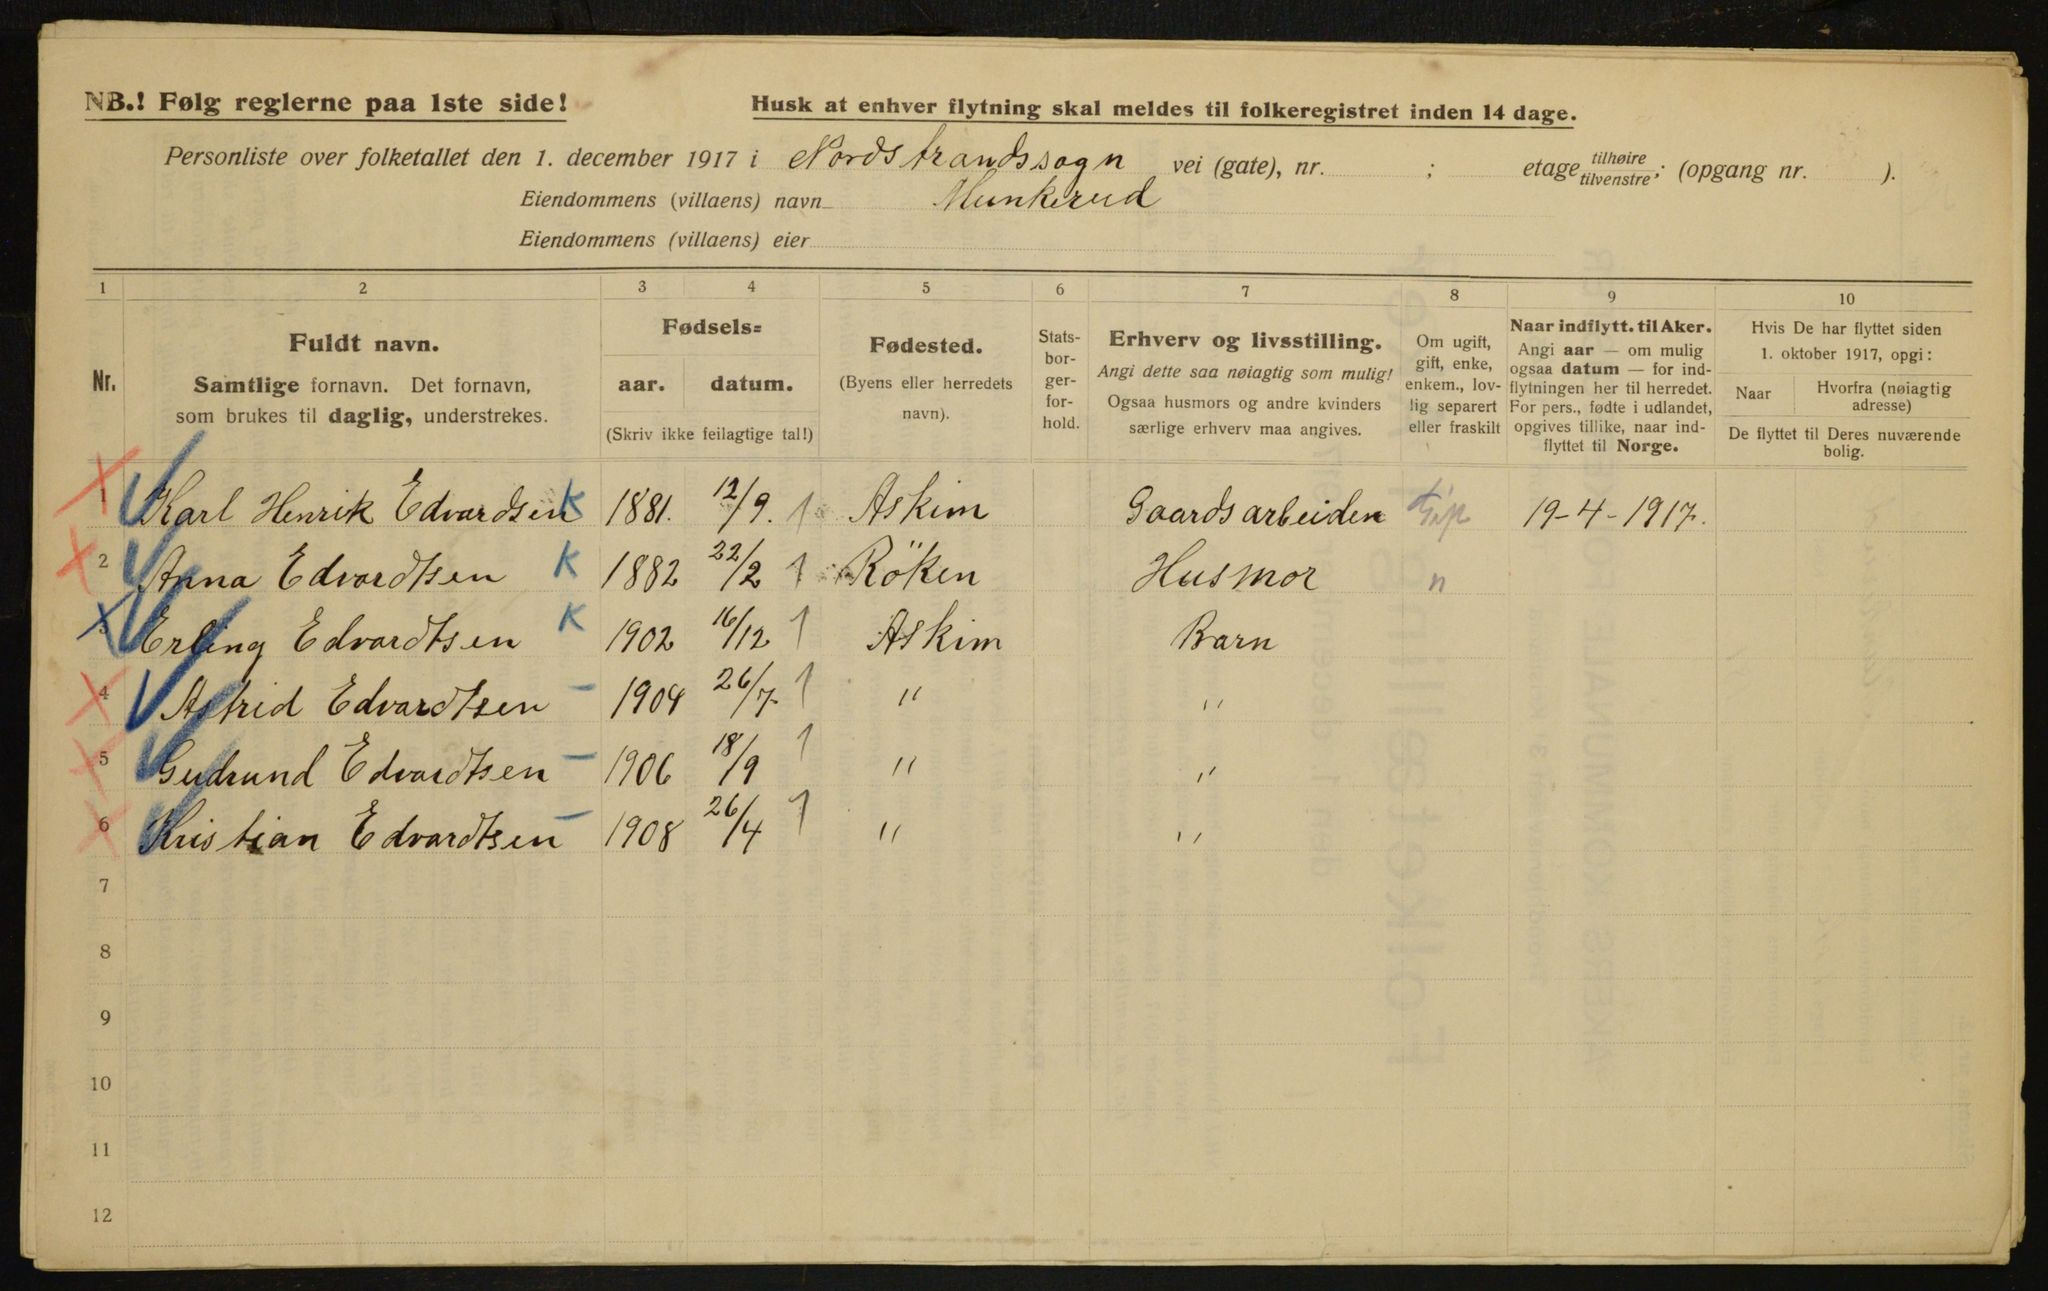 NB.! Følg reglerne paa 1ste side!
Husk at enhver flytning skal meldes til folkeregistret inden 14 dage.
Personliste over folketallet den 1. december 1917 i Nordstrandssogn vei (gate), nr. ; etage tilhøire tilvenstre; (opgang nr. ).
Eiendommens (villaens) navn Munkerud
Eiendommens (villaens) eier
1 2 3 4 5 6 7 8 9 10
Nr.
Fuldt navn.
Samtlige fornavn. Det fornavn,
som brukes til daglig, understrekes.
Fødsels=
aar. datum.
(Skriv ikke feilagtige tal!)
Fødested.
(Byens eller herredets
navn).
Stats-
bor-
ger-
for-
hold.
Erhverv og livsstilling.
Angi dette saa nøiagtig som mulig!
Ogsaa husmors og andre kvinders
særlige erhverv maa angives.
Om ugift,
gift, enke,
enkem., lov-
lig separert
eller fraskilt
Naar indflytt. til Aker.
Angi aar — om mulig
ogsaa datum — for ind-
flytningen her til herredet.
For pers., fødte i udlandet,
opgives tillike, naar ind-
flyttet til Norge.
Hvis De har flyttet siden
1. oktober 1917, opgi:
Naar
Hvorfra (nøiagtig
adresse)
De flyttet til Deres nuværende
bolig.
1 Karl Henrik Edvardsen K 1881. 12/9. 1 Askim Gaardsarbeiden Gift 19-4-1917.
2 Anna Edvardtsen K 1882 22/2 1 Röken Husmor "
3 Erling Edvardtsen K 1902 16/12 1 Askim Barn
4 Astrid Edvardtsen – 1904 26/7 1 " "
5 Gudrund Edvardtsen – 1906 18/9 1 " "
6 Kristian Edvardtsen – 1908 26/4 1 " "
7
8
9
10
11
12